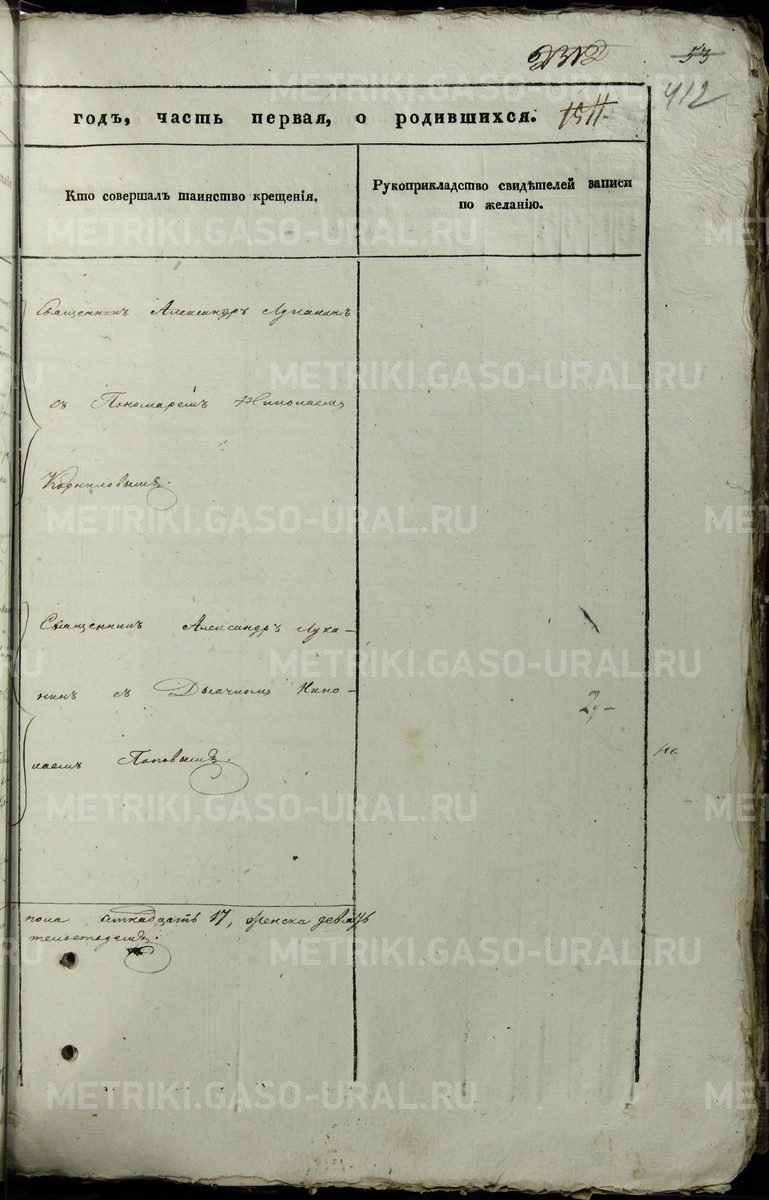 53
412
годъ, часть первая, о родившихся.
Кто совершалъ таинство крещенія.
Рукоприкладство свидѣтелей записи
по желанію.
Священникъ Александръ Луканинъ
съ Пономаремъ Николаемъ
Корниловымъ.
Священникъ Александръ Лука-
нинъ съ Дьячкомъ Нико-
лаемъ Поповымъ.
пола 17, женска девять
METRIKI.GASO-URAL.RU